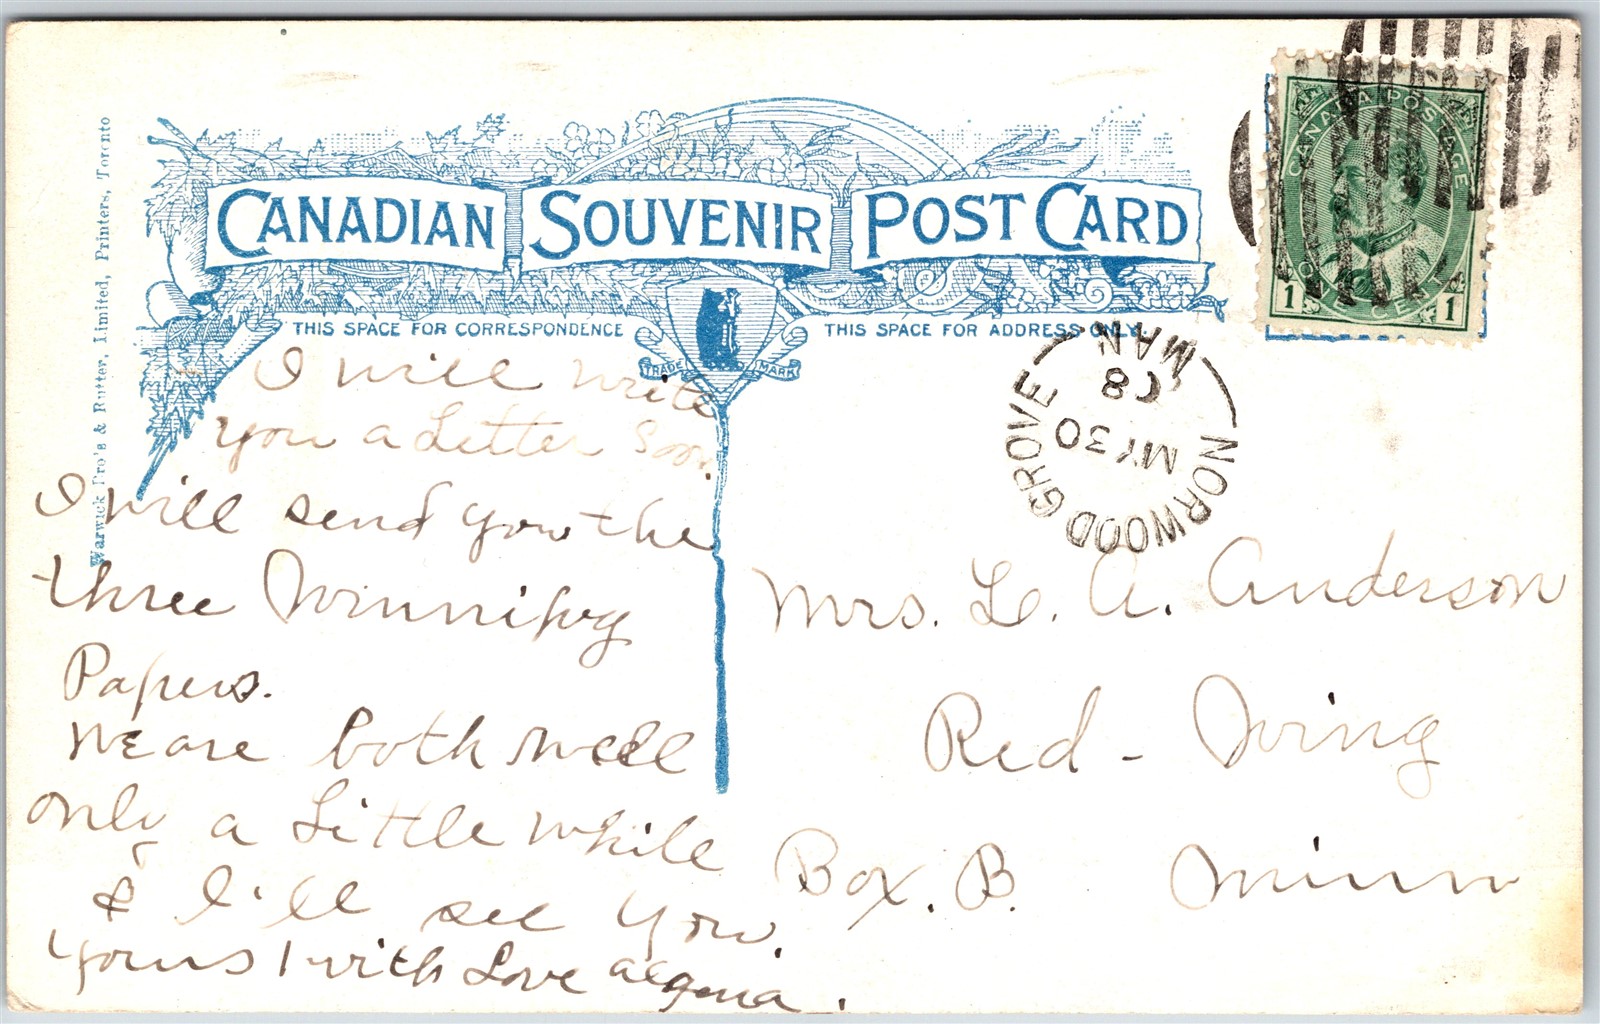 CANADIAN SOUVENIR POST CARD
THIS SPACE FOR CORRESPONDENCE
THIS SPACE FOR ADDRESS ONLY.
TRADE MARK
Warwick Bro's & Rutter, Limited, Printers, Toronto
CANADA POSTAGE
1 CENT 1
NORWOOD GROVE
MAN
MY 30
08
I will write
you a Letter Soon
I will send you the
three Winnipeg
Papers.
We are both well
only a Little while
& I'll see you.
yours with Love
Mrs. L. A. Anderson
Red - Wing
Box. B. Minn